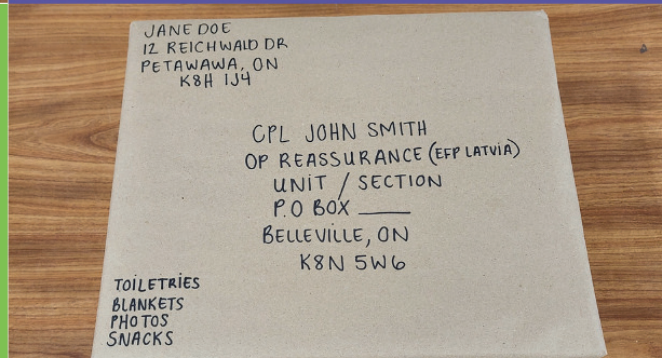 JANE DOE
12 REICHWALD DR
PETAWAWA, ON
K8H 1J4
CPL JOHN SMITH
OP REASSURANCE (EFP LATVIA)
UNIT / SECTION
P.O BOX ____
BELLEVILLE, ON
K8N 5W6
TOILETRIES
BLANKETS
PHOTOS
SNACKS